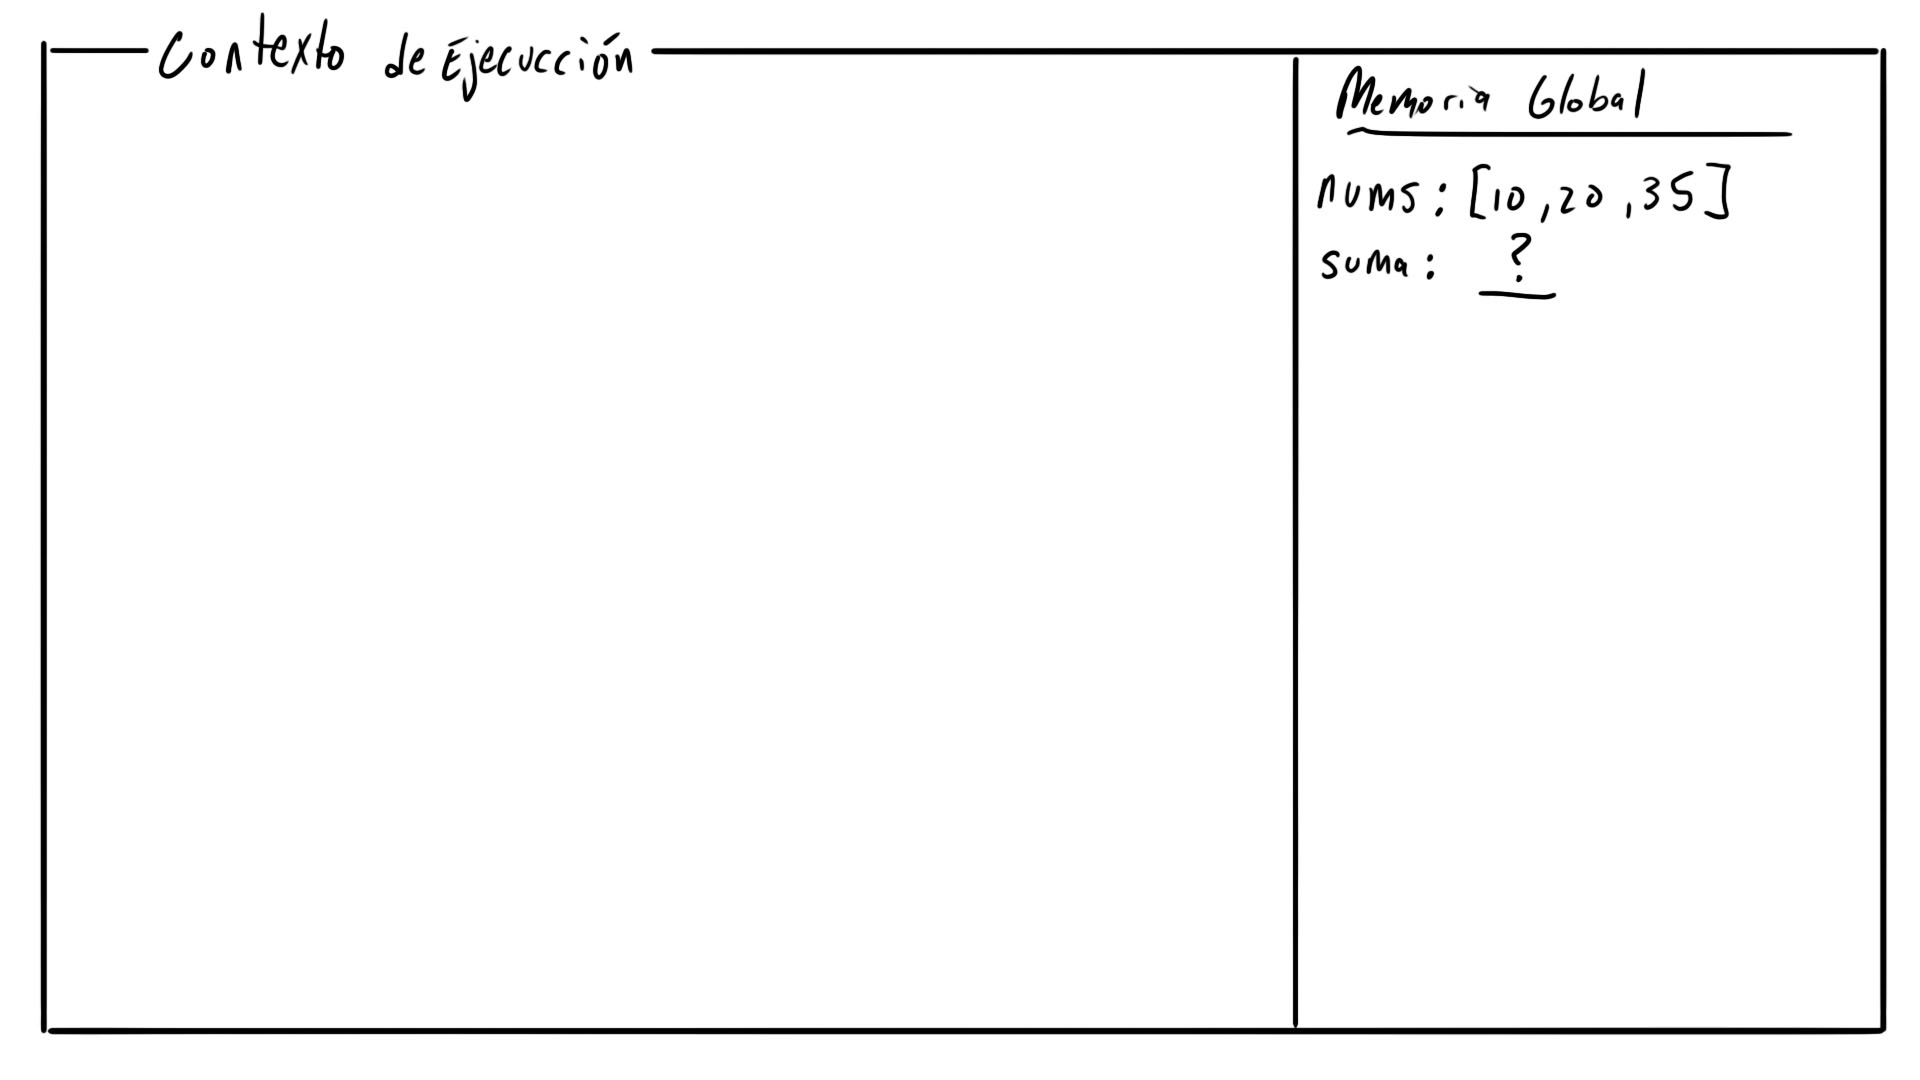 Contexto de Ejecucción
Memoria Global
nums: [10,20,35]
suma: ?